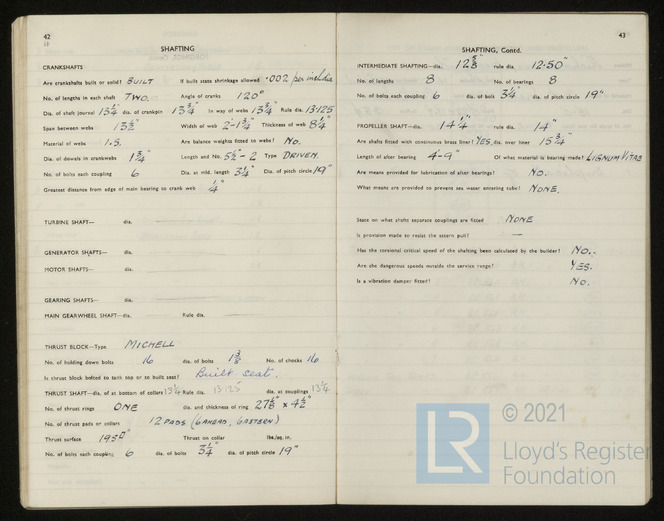 42
SHAFTING
CRANKSHAFTS
Are crankshafts built or solid? BUILT If built state shrinkage allowed .002 per inch dia
No. of lengths in each shaft TWO. Angle of cranks 120°
Dia. of shaft journal 13¼" dia. of crankpin 13¾" In way of webs 13¾" Rule dia. 13·125
Span between webs 13½" Width of web 2'-1¾" Thickness of web 8¼"
Material of webs I.S. Are balance weights fitted to webs? No.
Dia. of dowels in crankwebs 1¾" Length and No. 5½" - 2 Type DRIVEN.
No. of bolts each coupling 6 Dia. at mid. length 3¼" Dia. of pitch circle 19"
Greatest distance from edge of main bearing to crank web ¼"
TURBINE SHAFT— dia.
GENERATOR SHAFTS— dia.
MOTOR SHAFTS— dia.
GEARING SHAFTS— dia.
MAIN GEARWHEEL SHAFT—dia. Rule dia.
THRUST BLOCK—Type MICHELL
No. of holding down bolts 16 dia. of bolts 1⅜" No. of chocks 16
Is thrust block bolted to tank top or to built seat? Built seat.
THRUST SHAFT—dia. of at bottom of collars 13¼" Rule dia. 13·125" dia. at couplings 13¼"
No. of thrust rings ONE dia. and thickness of ring 27⅛" x 4½"
No. of thrust pads or collars 12 PADS (6 AHEAD, 6 ASTERN)
Thrust surface Thrust on collar lbs./sq. in.
No. of bolts each coupling 6 dia. of bolts 3¼" dia. of pitch circle 19"
43
SHAFTING, Contd.
INTERMEDIATE SHAFTING—dia. 12⅝" rule dia. 12·50"
No. of lengths 8 No. of bearings 8
No. of bolts each coupling 6 dia. of bolt 3¼" dia. of pitch circle 19"
PROPELLER SHAFT—dia. 14¼" rule dia. 14"
Are shafts fitted with continuous brass liner? YES dia. over liner 15¾"
Length of after bearing 4'-9" Of what material is bearing made? LIGNUM VITAE
Are means provided for lubrication of after bearings? NO.
What means are provided to prevent sea water entering tube? NONE.
State on what shafts separate couplings are fitted NONE
Is provision made to resist the astern pull? —
Has the torsional critical speed of the shafting been calculated by the builder? NO.
Are the dangerous speeds outside the service range? YES.
Is a vibration damper fitted? NO.
LR © 2021
Lloyd's Register
Foundation